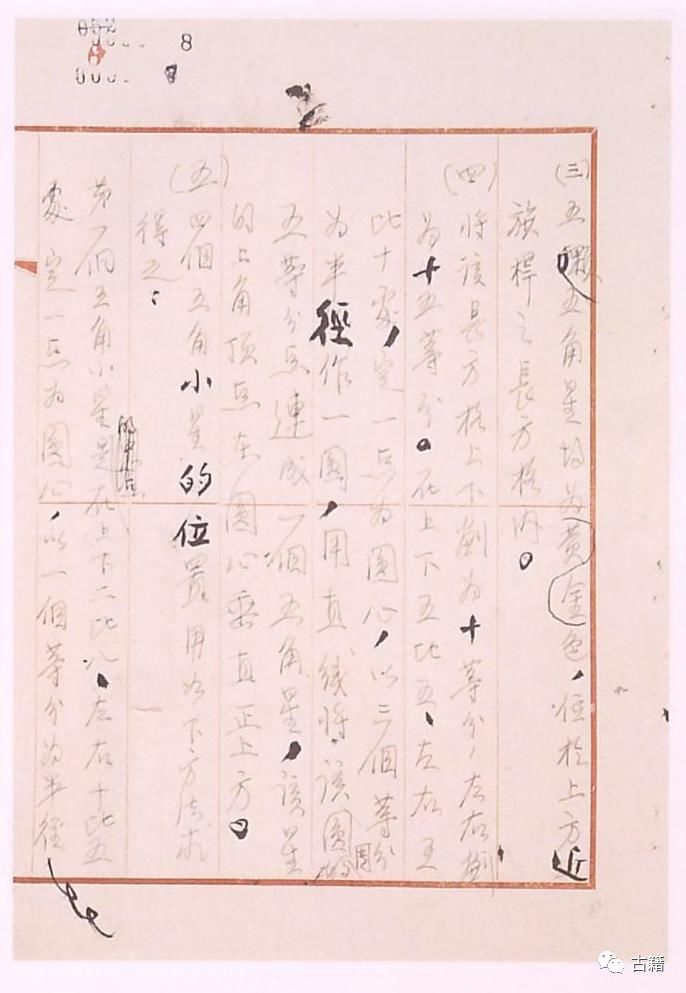 8
(三)五顆五角星均为黃金色，位於上方近
旗桿之長方格內。
(四)將該長方格上下劃为十等分，左右劃
为十五等分。在上下五比五、左右五
比十處，定一点为圓心，以三個等分
为半徑作一圓，用直线將該圓周的
五等分点連成一個五角星，該星
的上角頂点在圓心垂直正上方。
(五)四個五角小星的位置用如下方法求
得之：
第一個五角小星是在上下二比八、左右十比五
處定一点为圓心，以一個等分为半徑
古籍